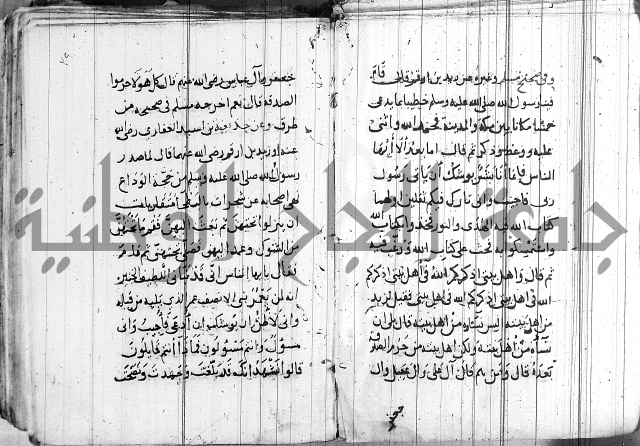 وفي صحيح مسلم وغيره عن زيد بن ارقم قال قام
فينا رسول الله صلى الله عليه وسلم خطيبا بماء يدعى
خمسا مكانا بين مكة والمدينة فحمد الله واثنى
عليه ووعظ وذكر ثم قال اما بعد الا ايها
الناس فانما انا بشر يوشك ان ياتي رسول
ربي فاجيب واني تارك فيكم ثقلين اولهما
كتاب الله فيه الهدى والنور فخذوا بكتاب الله
واستمسكوا به فحث على كتاب الله ورغب فيه
ثم قال واهل بيتي اذكركم الله في اهل بيتي اذكركم
الله في اهل بيتي اذكركم الله في اهل بيتي فقيل لزيد
من اهل بيته اليس نساؤه من اهل بيته قال بلى ان
نساؤه من اهل بيته ولكن اهل بيته من حرم الصدقة
بعده قال ومن هم قال آل علي وآل عقيل وآل
جعفر
جعفر وآل عباس رضي الله عنهم قال كل هؤلاء حرموا
الصدقة قال نعم اخرجه مسلم في صحيحه من
طرق وعن حذيفة بن اسيد الغفاري رضي الله
عنه او زيد بن ارقم رضي الله عنهما قال لما صدر
رسول الله صلى الله عليه وسلم من حجة الوداع
نهى اصحابه عن شجرات بالبطحا متقاربات
ان ينزلوا تحتهن ثم بعث اليهن فقم ما تحتهن
من الشوك وعمد اليهن فصلى تحتهن ثم قام
فقال يا ايها الناس اني قد نباني اللطيف الخبير
انه لن يعمر نبي الا نصف عمر الذي يليه من قبله
واني لاظن ان يوشك ان ادعى فاجيب واني
مسؤل وانتم مسؤلون فماذا انتم قائلون
قالوا نشهد انك قد بلغت وجهدت ونصحت
جامعة النجاح الوطنية